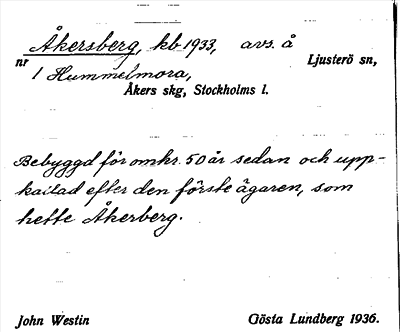 Åkersberg, kb 1933, avs. å
Ljusterö sn,
nr 1 Hummelmora,
Åkers skg, Stockholms l.
Bebyggd för omkr. 50 år sedan och upp-
kallad efter den förste ägaren, som
hette Åkerberg.
John Westin
Gösta Lundberg 1936.